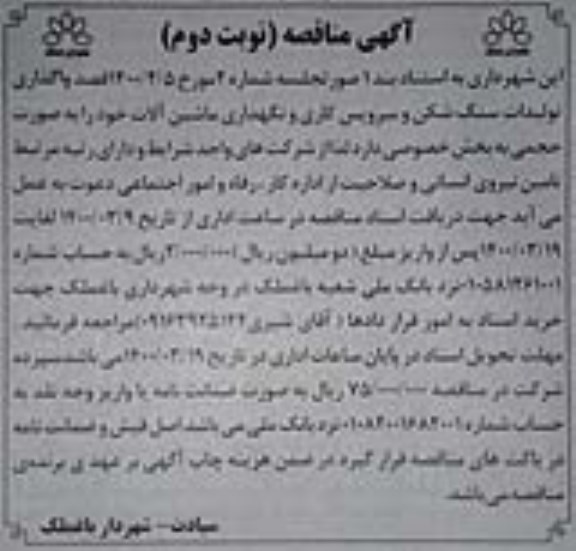 آگهی مناقصه (نوبت دوم)
این شهرداری به استناد بند ۱ صورتجلسه شماره ۲ مورخ ۱۴۰۰/۲/۵ قصد واگذاری
تولیدات سنگ شکن و سرویس کاری و نگهداری ماشین آلات خود را به صورت
حجمی به بخش خصوصی دارد لذا از شرکت های واجد شرایط و دارای رتبه مرتبط
تامین نیروی انسانی و صلاحیت از اداره کار ، رفاه و امور اجتماعی دعوت به عمل
می آید جهت دریافت اسناد مناقصه در ساعت اداری از تاریخ ۱۴۰۰/۰۳/۹ لغایت
۱۴۰۰/۰۳/۱۹ پس از واریز مبلغ (دو میلیون ریال) ۲/۰۰۰/۰۰۰ ریال به حساب شماره
نزد بانک ملی شعبه باغملک در وجه شهرداری باغملک جهت
خرید اسناد به امور قرار دادها (آقای شیری ۰۹۱۶۳۹۲۵۱۲۲) مراجعه فرمائید.
مهلت تحویل اسناد در پایان ساعات اداری در تاریخ ۱۴۰۰/۰۳/۱۹ می باشد سپرده
شرکت در مناقصه ۷۵/۰۰۰/۰۰۰ ریال به صورت ضمانت نامه یا واریز وجه نقد به
حساب شماره نزد بانک ملی می باشد اصل فیش و ضمانت نامه
در پاکت های مناقصه قرار گیرد در ضمن هزینه چاپ آگهی بر عهده ی برنده ی
مناقصه می باشد.
سیادت - شهردار باغملک